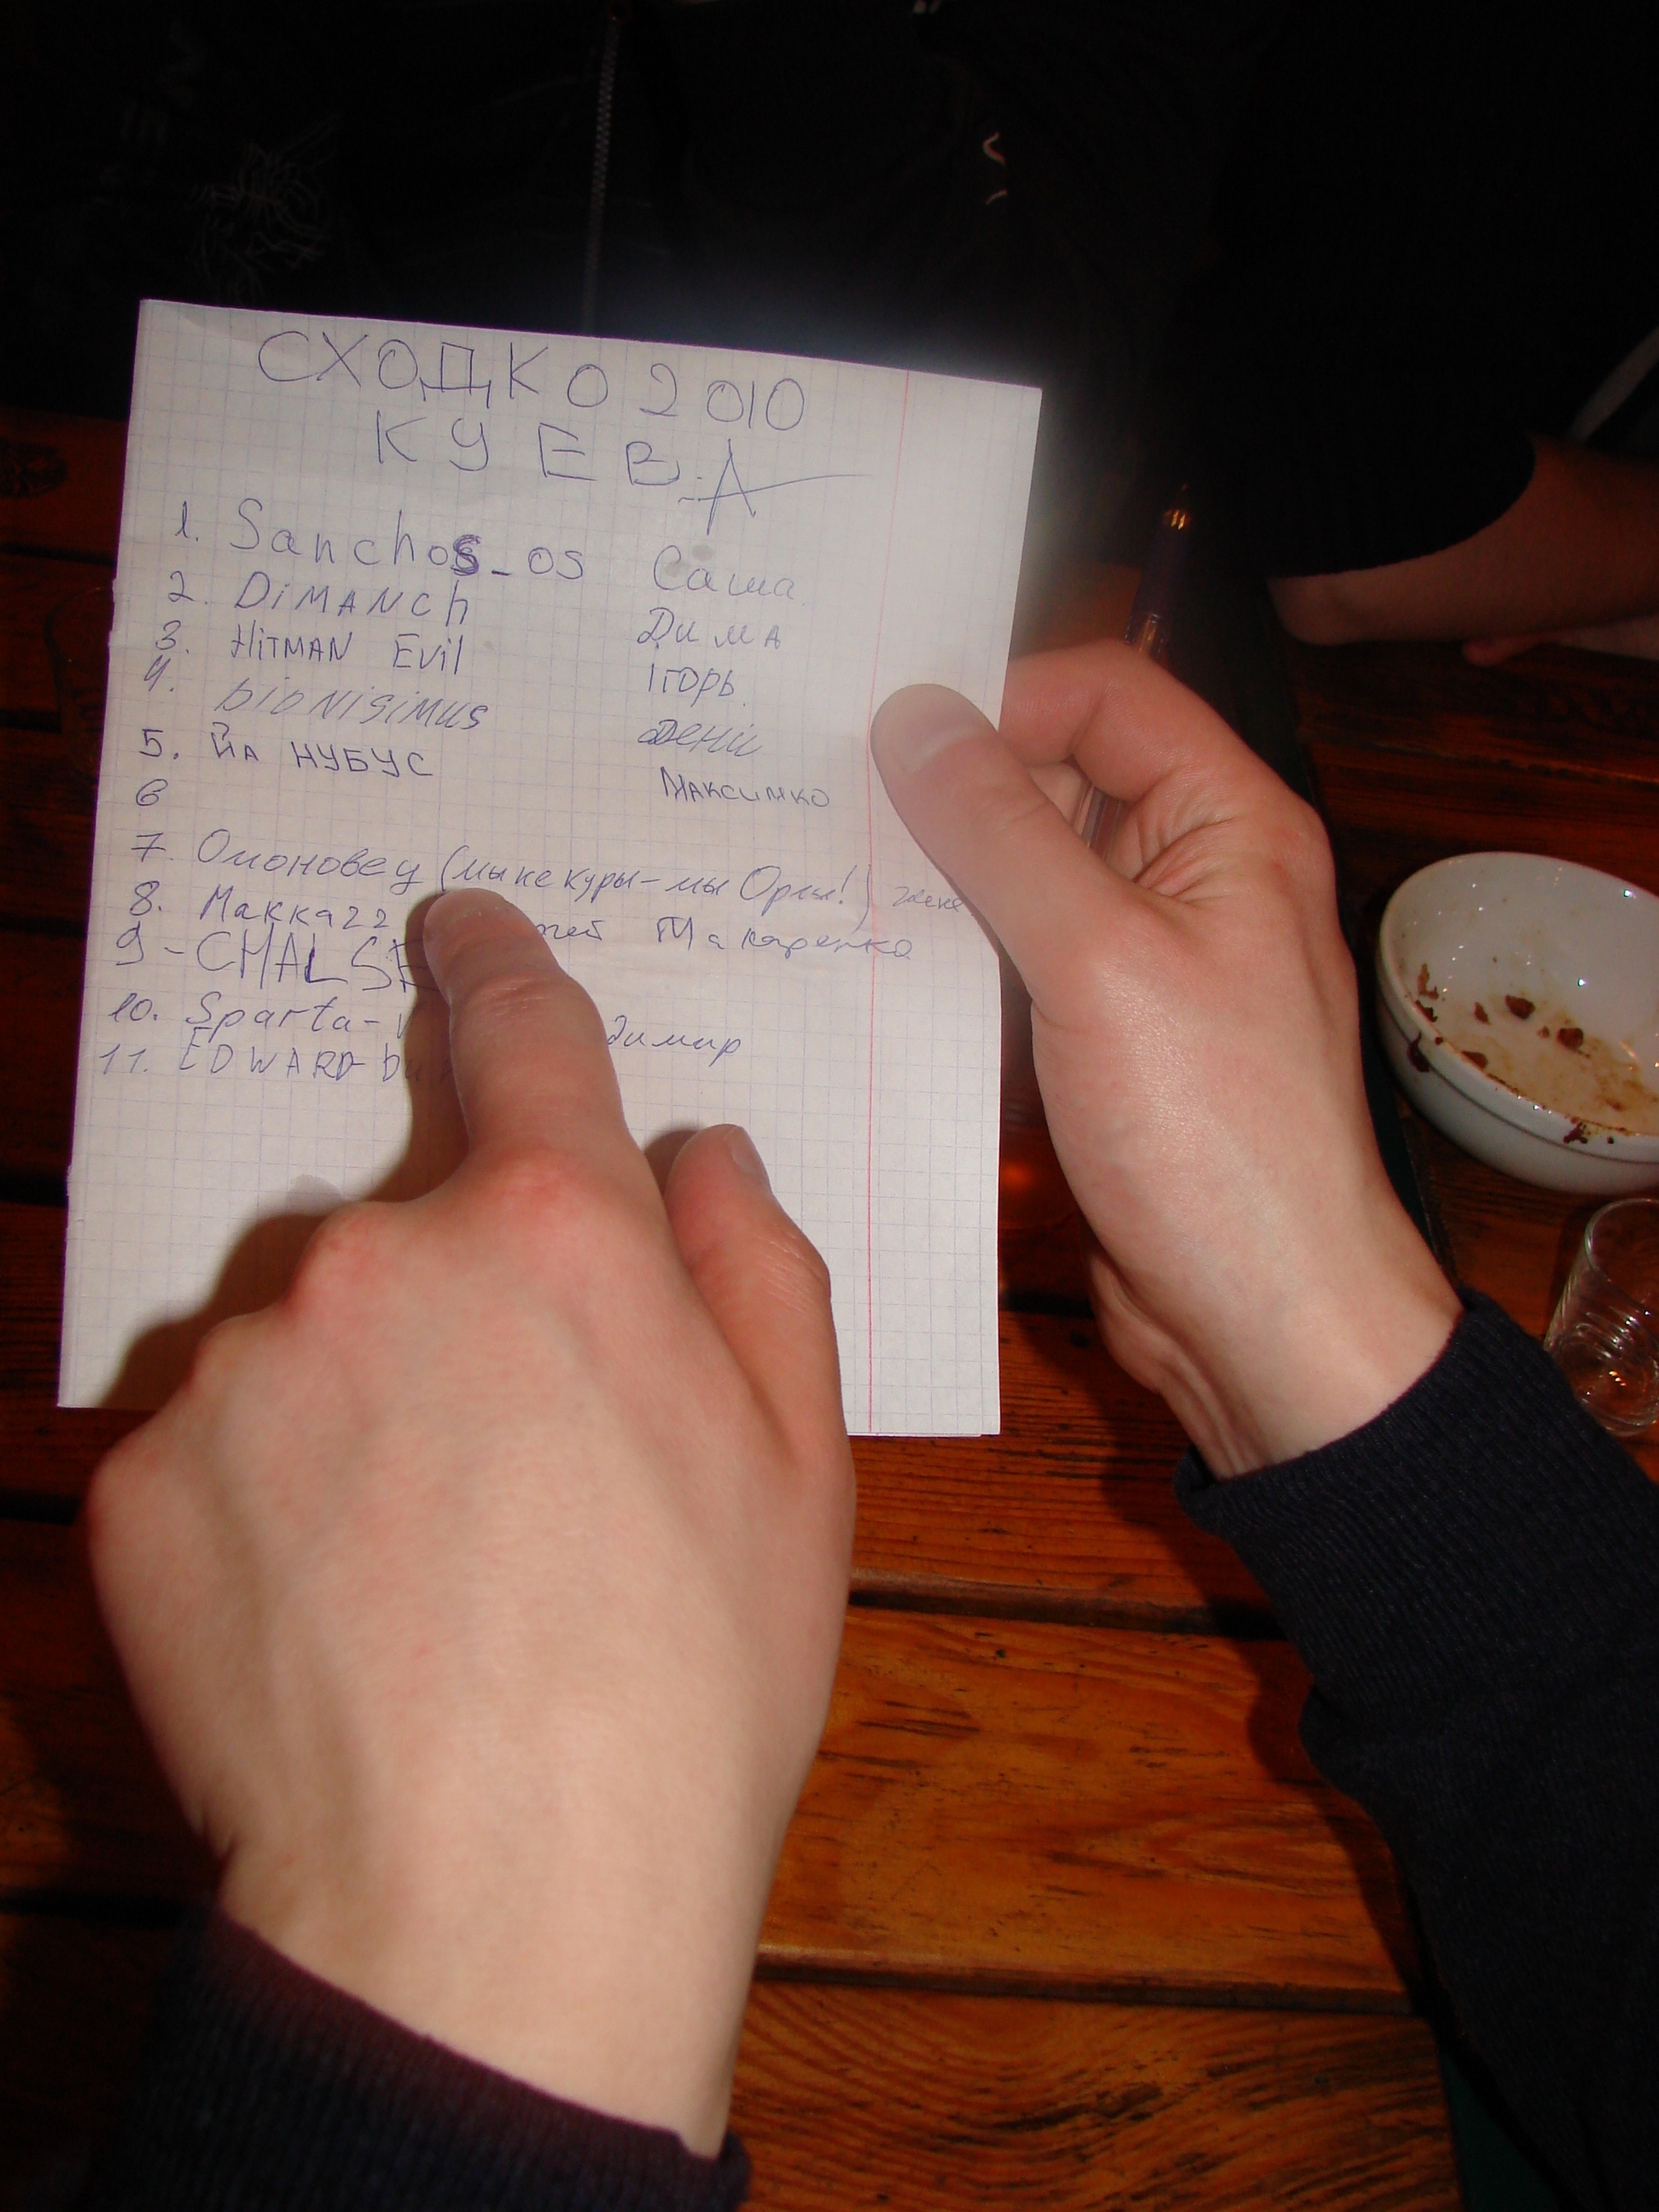 СХОДКО 2010
КУЕВА
1. Sanchos_os Саша
2. DiMANch Дима
3. HiTMAN Evil Ігорь
4. bioNisiMUS
5. ЙА НУБУС Максимко
6
7. Омоновец (мы не куры - мы Орлы!)
8. Маккаzz Макаренко
9 -
10. Sparta-
11. EDWARD